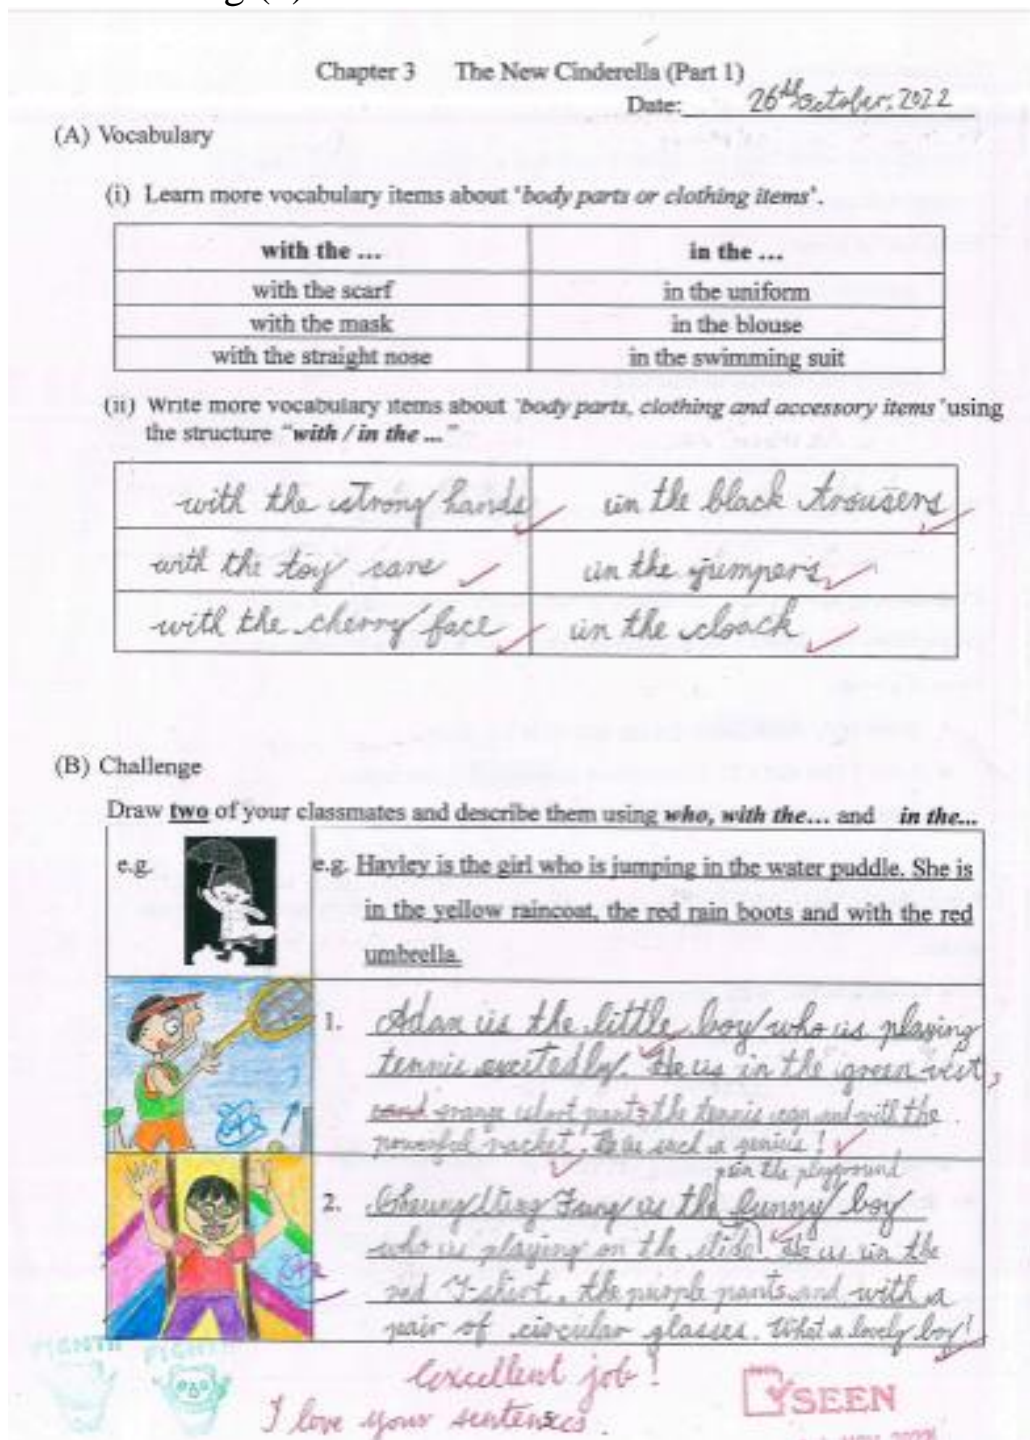 Chapter 3 The New Cinderella (Part 1)
Date: 26th October, 2022
(A) Vocabulary
(i) Learn more vocabulary items about 'body parts or clothing items'.
with the ... in the ...
with the scarf in the uniform
with the mask in the blouse
with the straight nose in the swimming suit
(ii) Write more vocabulary items about 'body parts, clothing and accessory items' using
the structure "with / in the ..."
with the strong hands in the black trousers
with the toy cane in the jumpers
with the cherry face in the cloack
(B) Challenge
Draw two of your classmates and describe them using who, with the... and in the...
e.g. e.g. Hayley is the girl who is jumping in the water puddle. She is
in the yellow raincoat, the red rain boots and with the red
umbrella.
1. Adam is the little boy who is playing
tennis excitedly. He is in the green vest,
and orange short pants the tennis cap and with the
powerful racket. He is such a genius!
in the playground
2. Cheung Fung is the funny boy
who is playing on the slide. He is in the
red T-shirt, the purple pants and with a
pair of circular glasses. What a lovely boy!
Excellent job!
I love your sentences.
5
SEEN